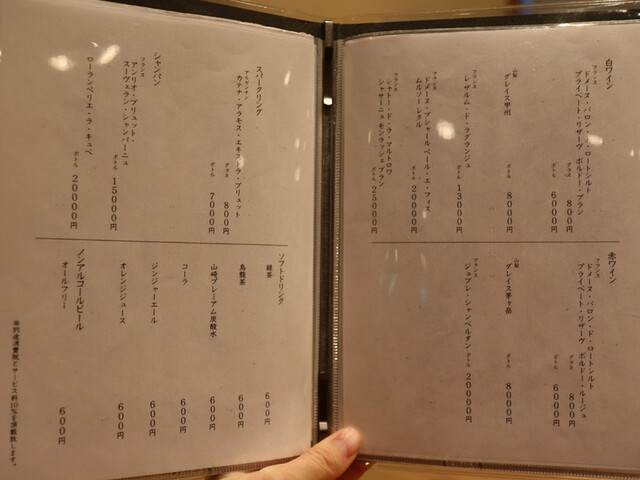 白ワイン
フランス
ドメーヌ・バロン・ド・ロートシルト
プライベート・リザーヴ ボルドー・ブラン
グラス 800円
ボトル 6000円
山梨
グレイス甲州
ボトル 8000円
フランス
レザルム・ド・ラグランジュ
ボトル 13000円
フランス
ドメーヌ・ブシャール ペール・エ・フィス
ムルソー レクル
ボトル 20000円
フランス
シャトー・ド・ラ・マルトロワ
シャサーニュ モンラッシェ ブラン
ボトル 25000円
赤ワイン
フランス
ドメーヌ・バロン・ド・ロートシルト
プライベート・リザーヴ ボルドー・ルージュ
グラス 800円
ボトル 6000円
山梨
グレイス茅ヶ岳
ボトル 8000円
フランス
ジュブレ・シャンベルタン
ボトル 20000円
スパークリング
アルゼンチン
カテナ・アラモス・エキストラ・ブリュット
グラス 800円
ボトル 7000円
シャンパン
フランス
アンリオ・ブリュット
スーヴェラン・シャンパーニュ
ボトル 15000円
ローランペリエ・ラ・キュベ
ボトル 20000円
ソフトドリンク
緑茶 600円
烏龍茶 600円
山崎プレミアム炭酸水 600円
コーラ 600円
ジンジャーエール 600円
オレンジジュース 600円
ノンアルコールビール
オールフリー 600円
※別途消費税とサービス料10%を頂戴致します。